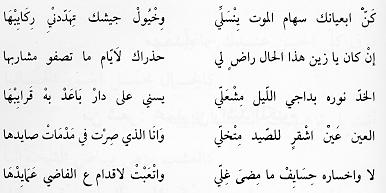 كَنّ ابعيانك سهام الموت يِنْسَلِّي وِخْيُولْ جيشك تِهَدّدني رِكايِبْهَا
إنْ كان يا زين هذا الحال راضٍ لي حذراك لاَيّام ما تصفو مشاربها
الخدّ نوره بداجي اللّيل مِشْعَلّي يسني على دارْ بَاعَدْ بهْ قَرايِبْهَا
العين عَيْنْ اشقرٍ للصّيد مِتْخَلّي وَانَا الذي صِرْت في مَدْمَات صايدها
لا واخساره حِسَايِفْ ما مِضىَ غِلّي واتْعَبْتْ لاقدام ع الفاضي عَمَايِدْهَا